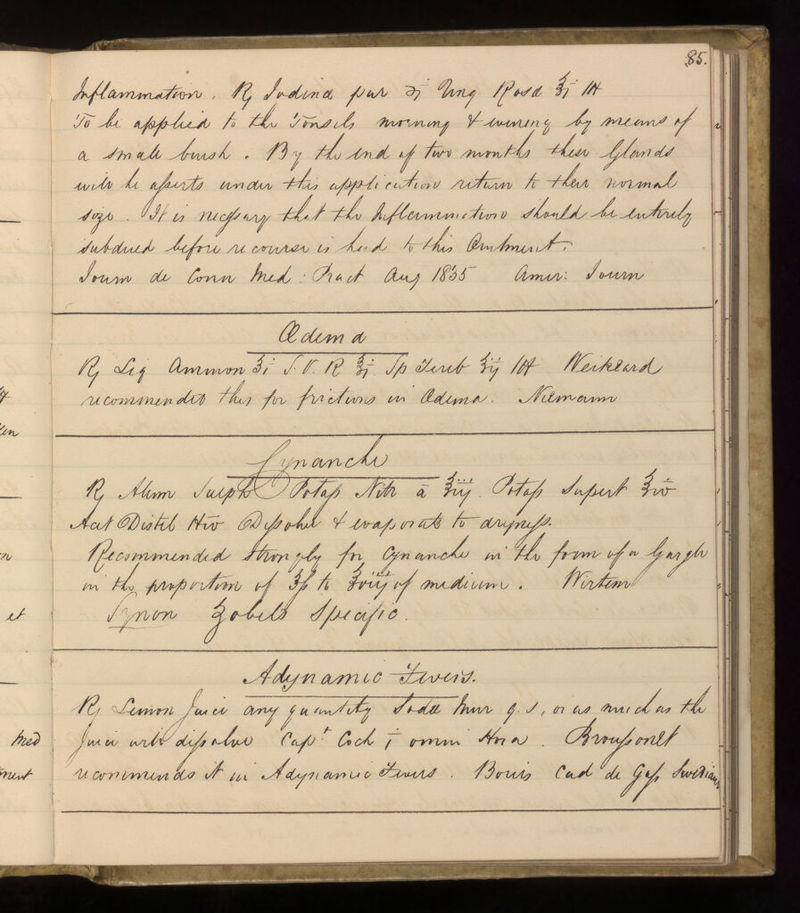 85.
Inflammation. ℞ Iodina pur ʒi Ung Rosa ℥i M
To be applied to the Tonsils morning & evening by means of
a small brush. By the end of two months these Glands
will he asserts under this application return to their normal
size. It is necessary that the Inflammation should be entirely
subdued before recourse is had to this Ointment.
Journ de Conn Med: Pract Aug 1835 Amer: Journ
Œdema
℞ Liq Ammon ℥i S.V.R ℥i Sp Tereb ℥ij M Weikard
recommended this for frictions in Œdema. Niemann
Cynanche
℞ Alum Sulph Potass Nitr ā ℥iij. Potass Supert ℥iv
Acet Distil ℔iv Dissolve & evaporate to dryness.
Recommended strongly for Cynanche in the form of a Gargle
in the proportion of ℥ss to ℥viij of medium. Wirtem
Synon Zobels Specific.
Adynamic Fevers.
℞ Lemon Juice any quantity Sodæ Mur q.s, or as much as the
Juice will dissolve Capt Coch i omni Hora. Broussonet
recommends it in Adynamic Fevers. Bouis Cad de Gass
med
et